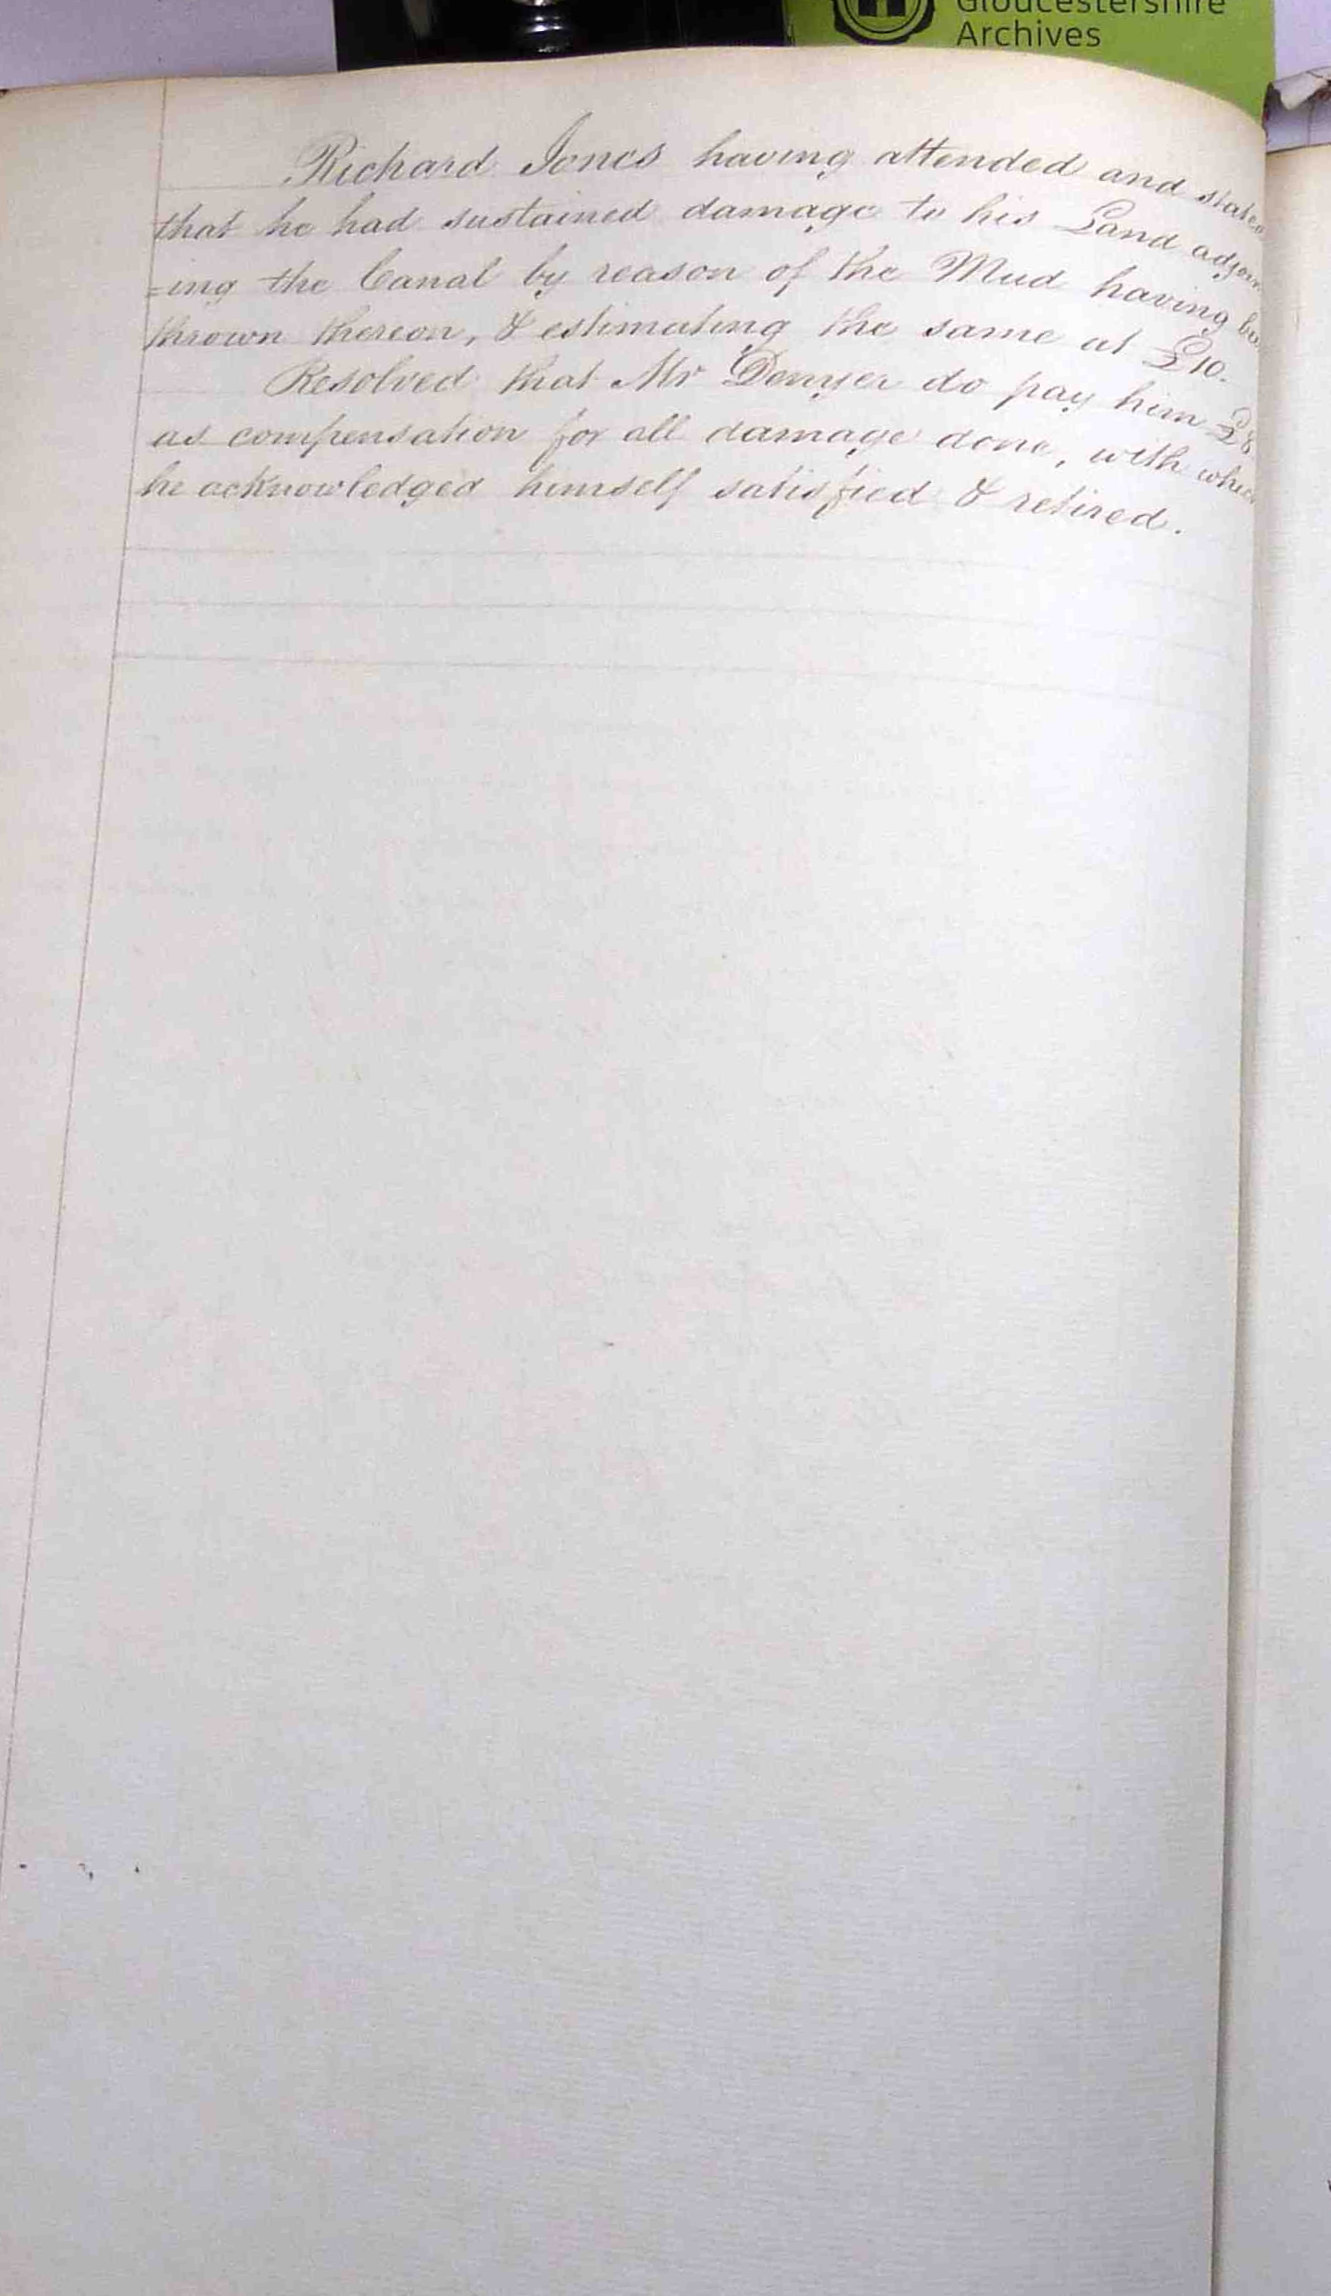 Gloucestershire
Archives
Richard Jones having attended and stated
that he had sustained damage to his Land adjoin
=ing the Canal by reason of the Mud having
thrown thereon, & estimating the same at £10.
Resolved that Mr Denyer do pay him £8
as compensation for all damage done, with which
he acknowledged himself satisfied & retired.